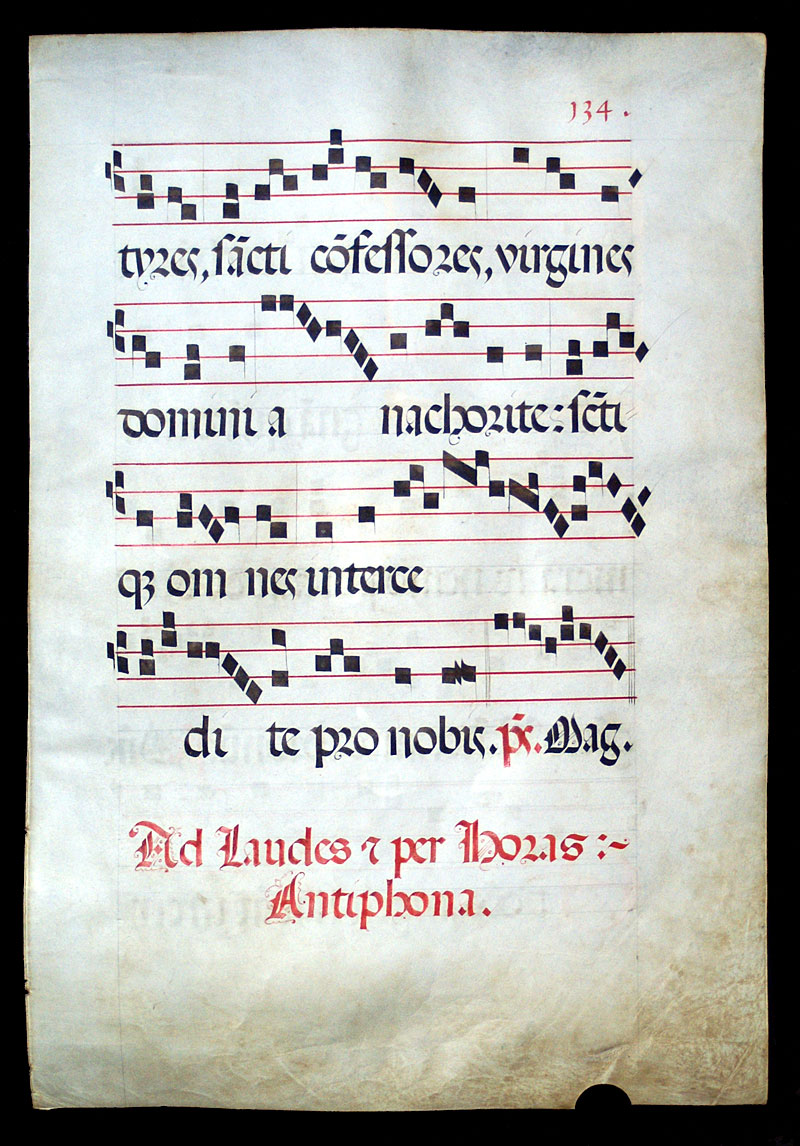 134.
tyres, sācti cōfessores, virgines
domini a nachorite: sc̄ti
qꝫ om nes interce
di te pro nobis. p̄s. Mag.
Ad Laudes ⁊ per Horas :~
Antiphona.